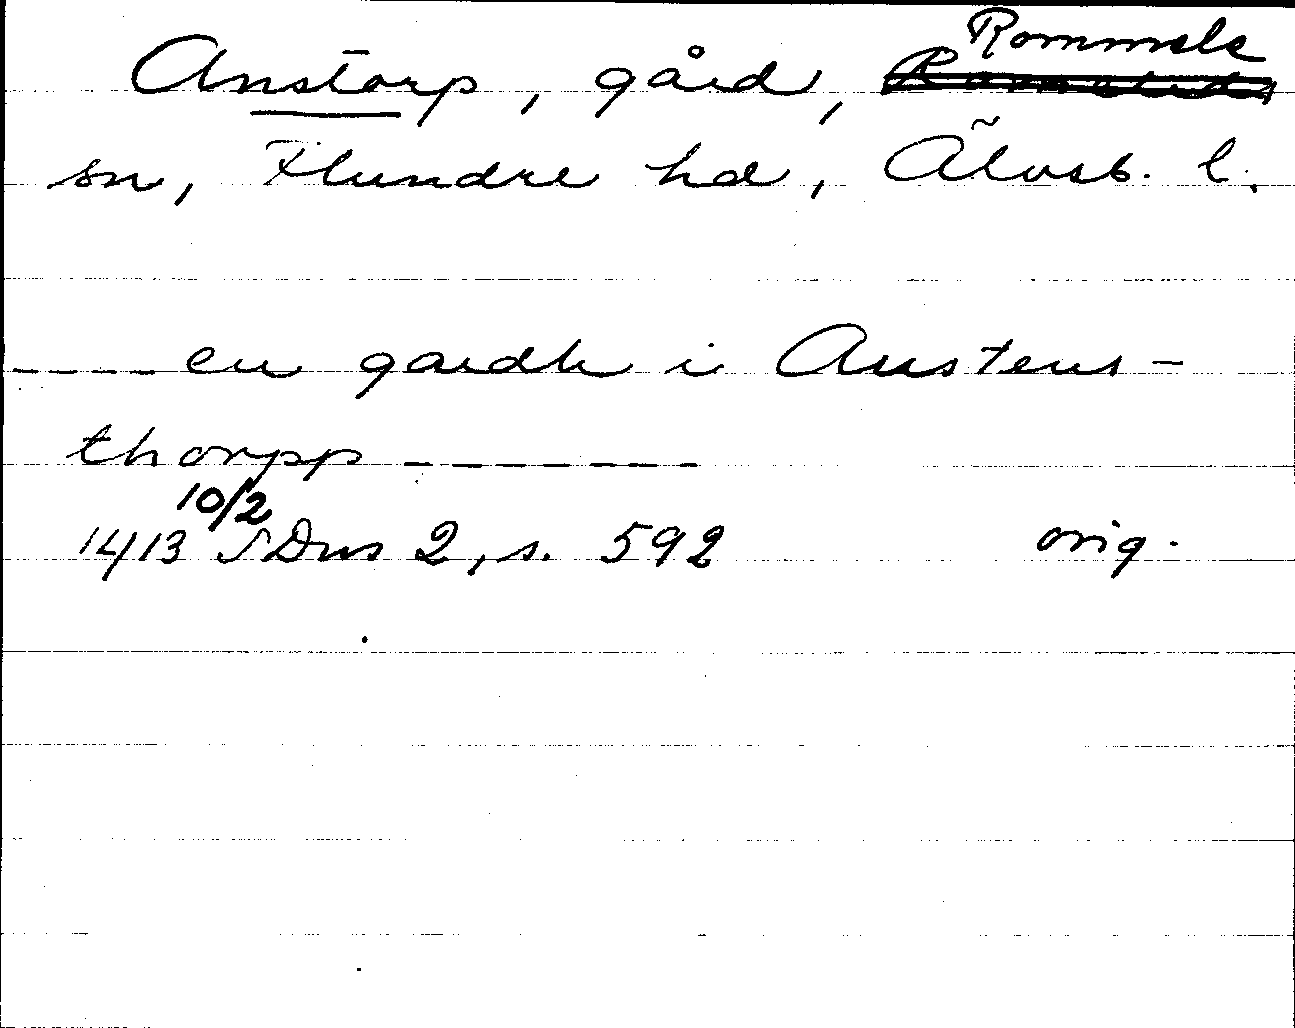 Anstorp, gård, Rommele
sn, Flundre hd, Älvsb. l.
---- en gardh i Austens-
thorpp -------
1413 10/2 SDns 2, s. 592 orig.